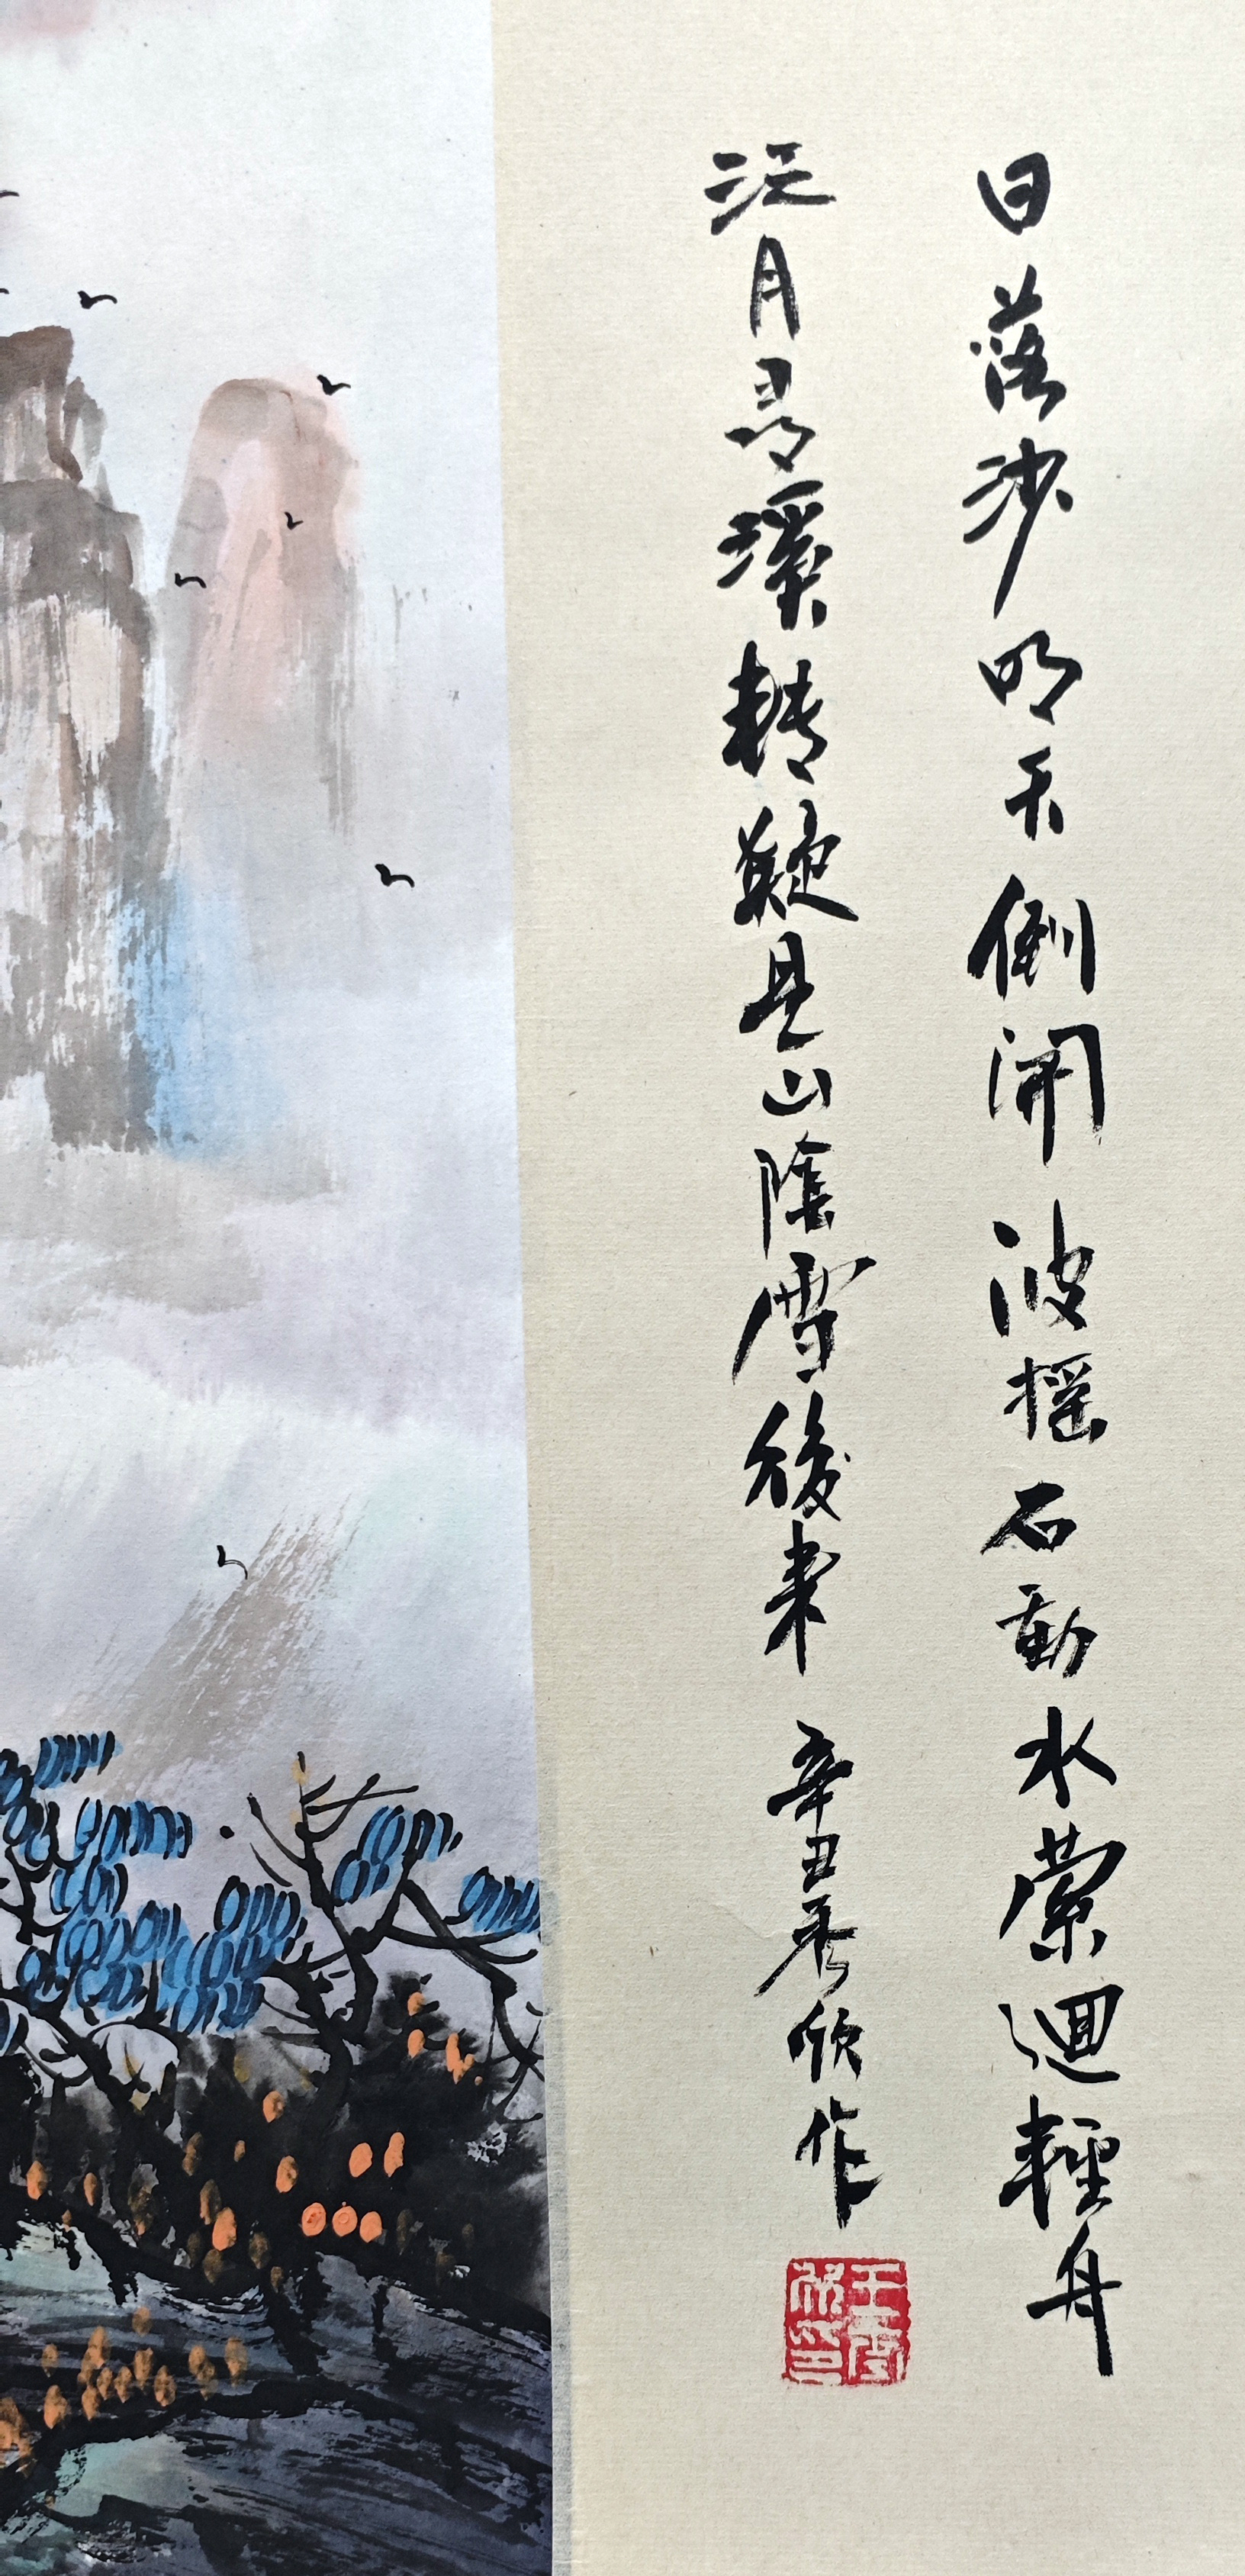 日落沙明天倒開波摇石動水縈迴輕舟
泛月尋溪轉疑是山陰雪後來 辛丑秀欣作
王秀欣印